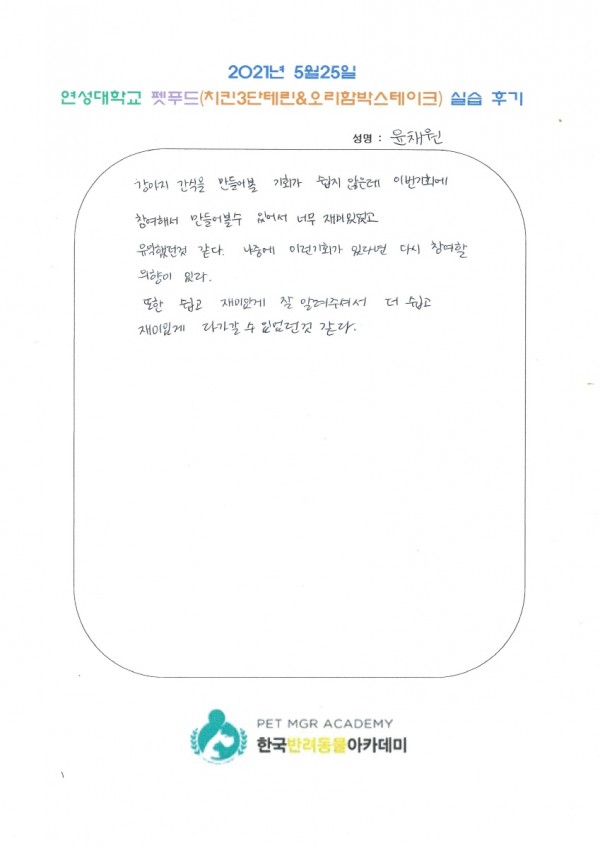 2021년 5월25일
연성대학교 펫푸드(치킨3단테린&오리함박스테이크) 실습 후기
성명 : 윤채원
강아지 간식을 만들어볼 기회가 쉽지 않은데 이번기회에
참여해서 만들어볼수 있어서 너무 재미있었고
유익했던것 같다. 나중에 이런기회가 있다면 다시 참여할
의향이 있다.
또한 쉽고 재미있게 잘 알려주셔서 더 쉽고
재미있게 다가갈 수 있었던것 같다.
PET MGR ACADEMY
한국반려동물아카데미